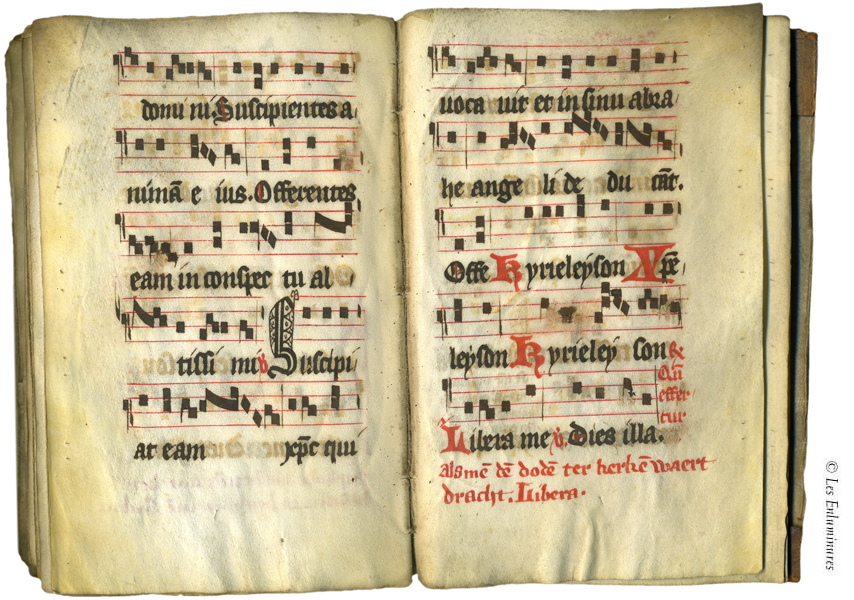 domi ni. Suscipientes a
nimā e ius. Offerentes
eam in conspec tu al
tissi mi ꝟ Suscipi
at eam xp̄c qui
uoca uit et in sinu abra
he ange li de du cāt.
Offe Kyrieleyson Xp̄e
leyson Kyrieley son
Libera me ꝟ. Dies illa.
effer
tur
alsmē dē dodē ter kerkē waert
dracht. Libera.
© Les Enluminures